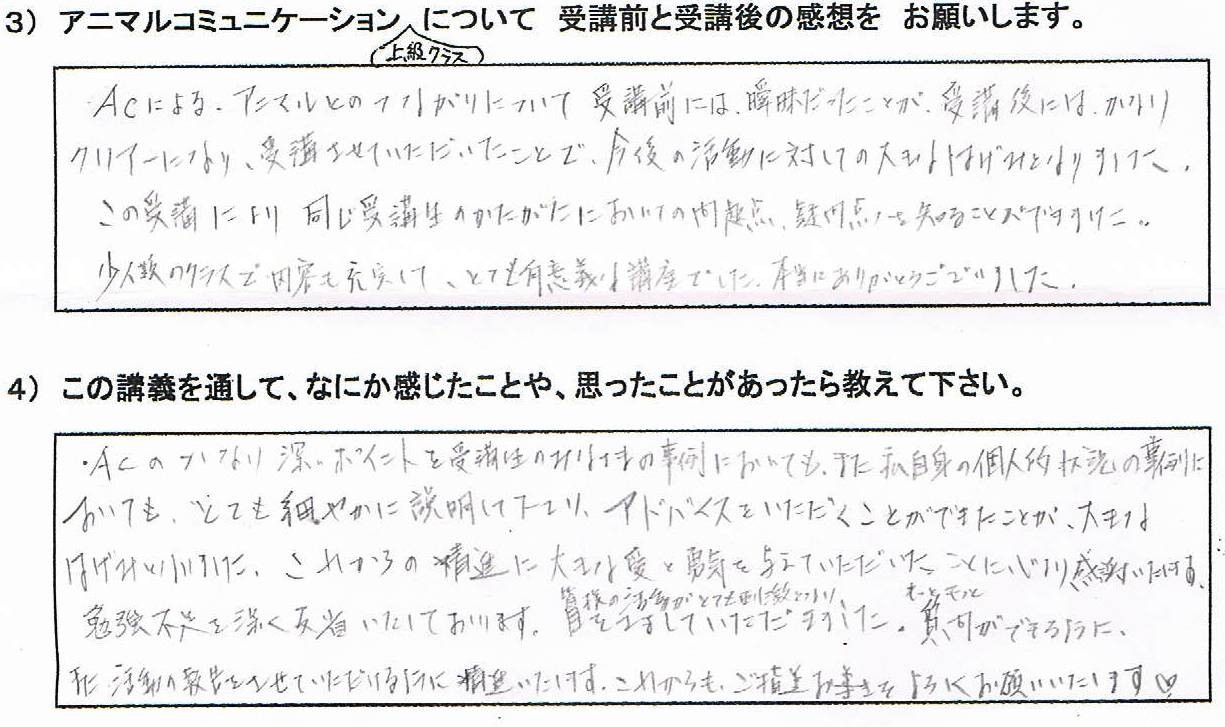 3) アニマルコミュニケーション について 受講前と受講後の感想を お願いします。
(上級クラス)
・ACによる、アニマルとのつながりについて受講前には、曖昧だったことが、受講後には、かなり
クリアーになり、受講させていただいたことで、今後の活動に対しての大きなはげみとなりました。
この受講により同じ受講生のかたがたにおいての問題点、疑問点を知ることができました。
少人数のクラスで内容も充実して、とても有意義な講座でした。本当にありがとうございました。
4) この講義を通して、なにか感じたことや、思ったことがあったら教えて下さい。
・ACのかなり深いポイントを受講生のみなさまの事例においても、また私自身の個人的状況の事例に
おいても、とても細やかに説明して下さり、アドバイスをいただくことができたことが、大きな
はげみといりました。これからの精進に大きな愛と勇気を与えていただいたことに心より感謝いたします。
皆様の活動がとても刺激となり、 もっともっと
勉強不足を深く反省いたしております。 していただきました。 ができるように、
また活動の報告をさせていただけるように精進いたします。これからも、ご指導お導きをよろしくお願いいたします♡